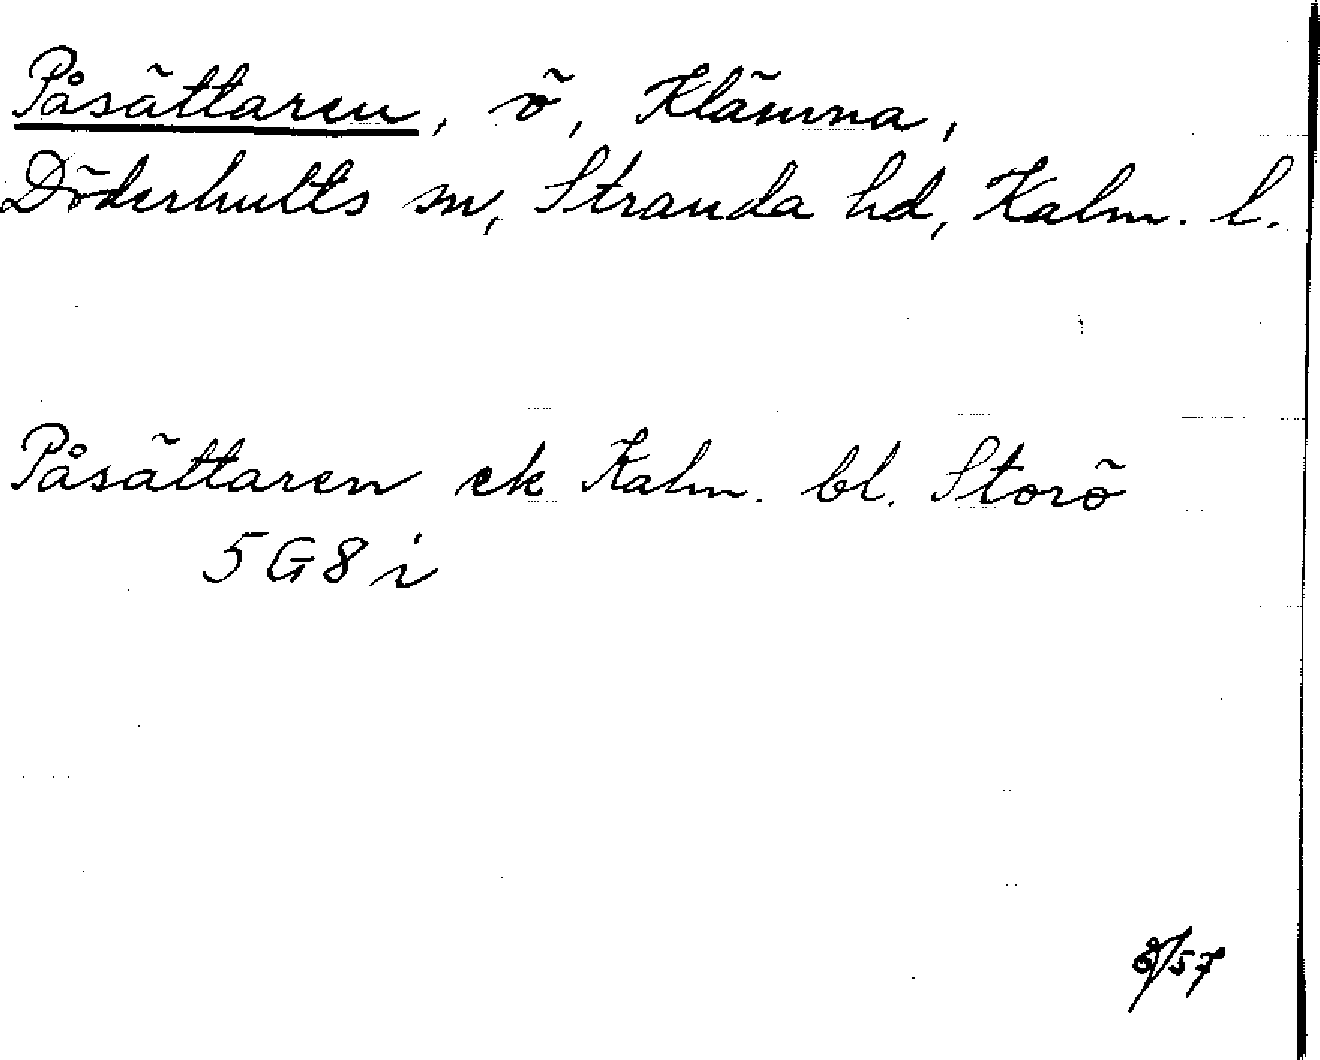 Påsättaren, ö, Klämna,
Döderhults sn, Stranda hd, Kalm. l.
Påsättaren ek Kalm. bl. Storö
5G8i
/57